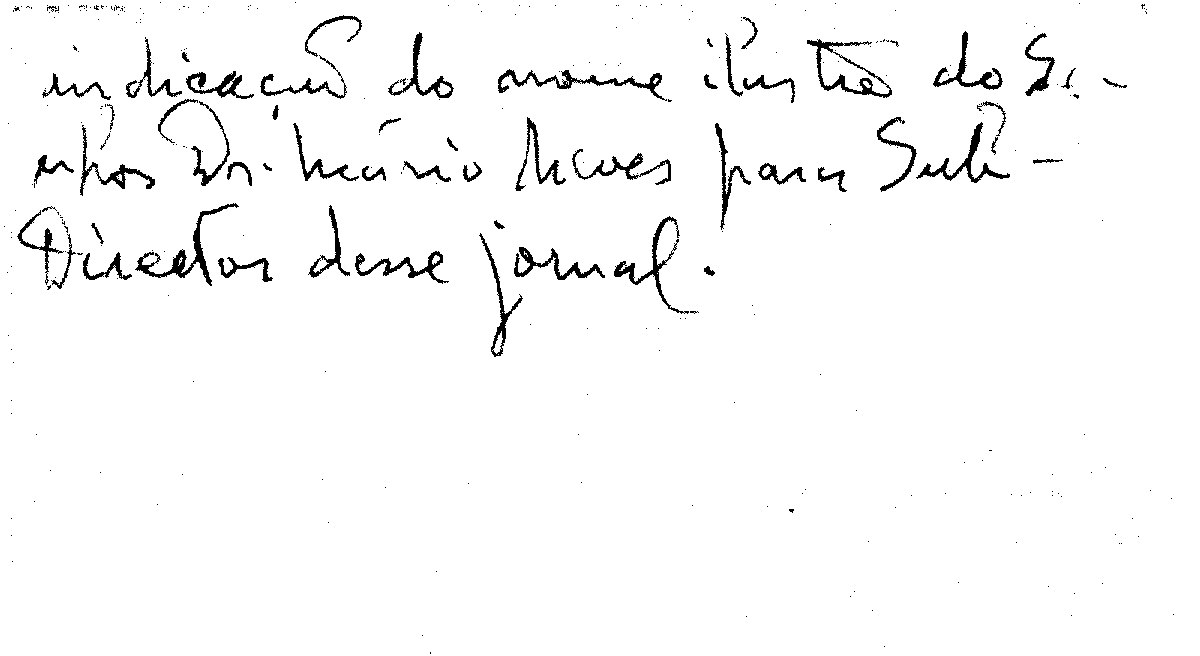 indicação do nome ilustre do Se-
nhor Dr. Mário Neves para Sub-
Director desse jornal.